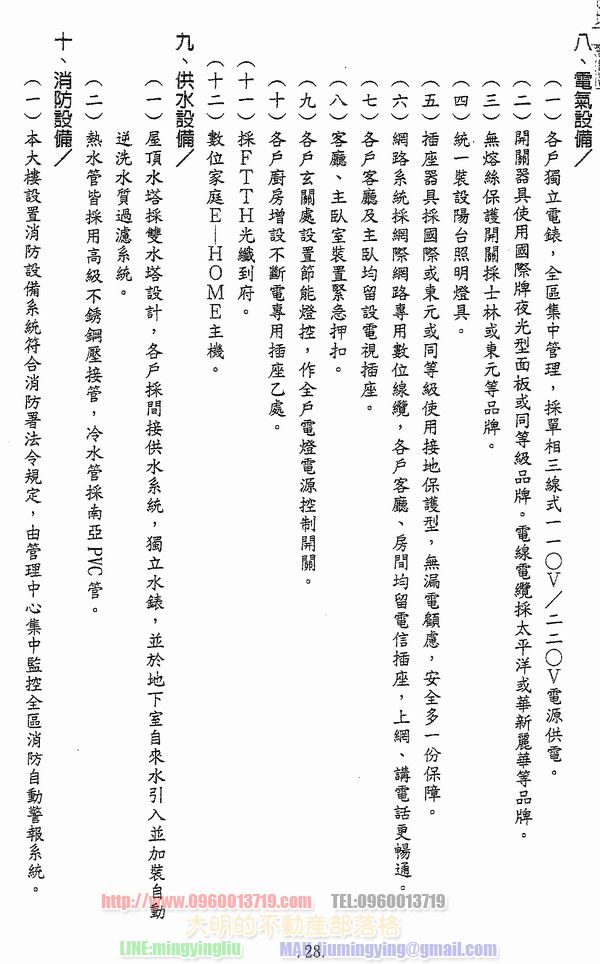 八、電氣設備／
（一）各戶獨立電錶，全區集中管理，採單相三線式一一〇V／二二〇V電源供電。
（二）開關器具使用國際牌夜光型面板或同等級品牌。電線電纜採太平洋或華新麗華等品牌。
（三）無熔絲保護開關採士林或東元等品牌。
（四）統一裝設陽台照明燈具。
（五）插座器具採國際或東元或同等級使用接地保護型，無漏電顧慮，安全多一份保障。
（六）網路系統採網際網路專用數位線纜，各戶客廳、房間均留電信插座，上網、講電話更暢通。
（七）各戶客廳及主臥均留設電視插座。
（八）客廳、主臥室裝置緊急押扣。
（九）各戶玄關處設置節能燈控，作全戶電燈電源控制開關。
（十）各戶廚房增設不斷電專用插座乙處。
（十一）採FTTH光纖到府。
（十二）數位家庭E—HOME主機。
九、供水設備／
（一）屋頂水塔採雙水塔設計，各戶採間接供水系統，獨立水錶，並於地下室自來水引入並加裝自動
逆洗水質過濾系統。
（二）熱水管皆採用高級不銹鋼壓接管，冷水管採南亞PVC管。
十、消防設備／
（一）本大樓設置消防設備系統符合消防署法令規定，由管理中心集中監控全區消防自動警報系統。
http://www.0960013719.com TEL:0960013719
大明的不動產部落格
LINE:mingyingliu MAIL:jumingying@gmail.com
.28.